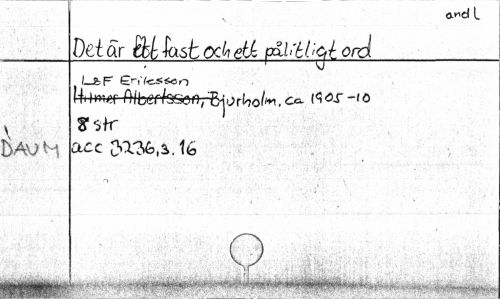 andl
Det är ett fast och ett pålitligt ord
L&F Eriksson
Hilmer Albertsson, Bjurholm, ca 1905-10
8 str
DAUM acc 3236, s. 16